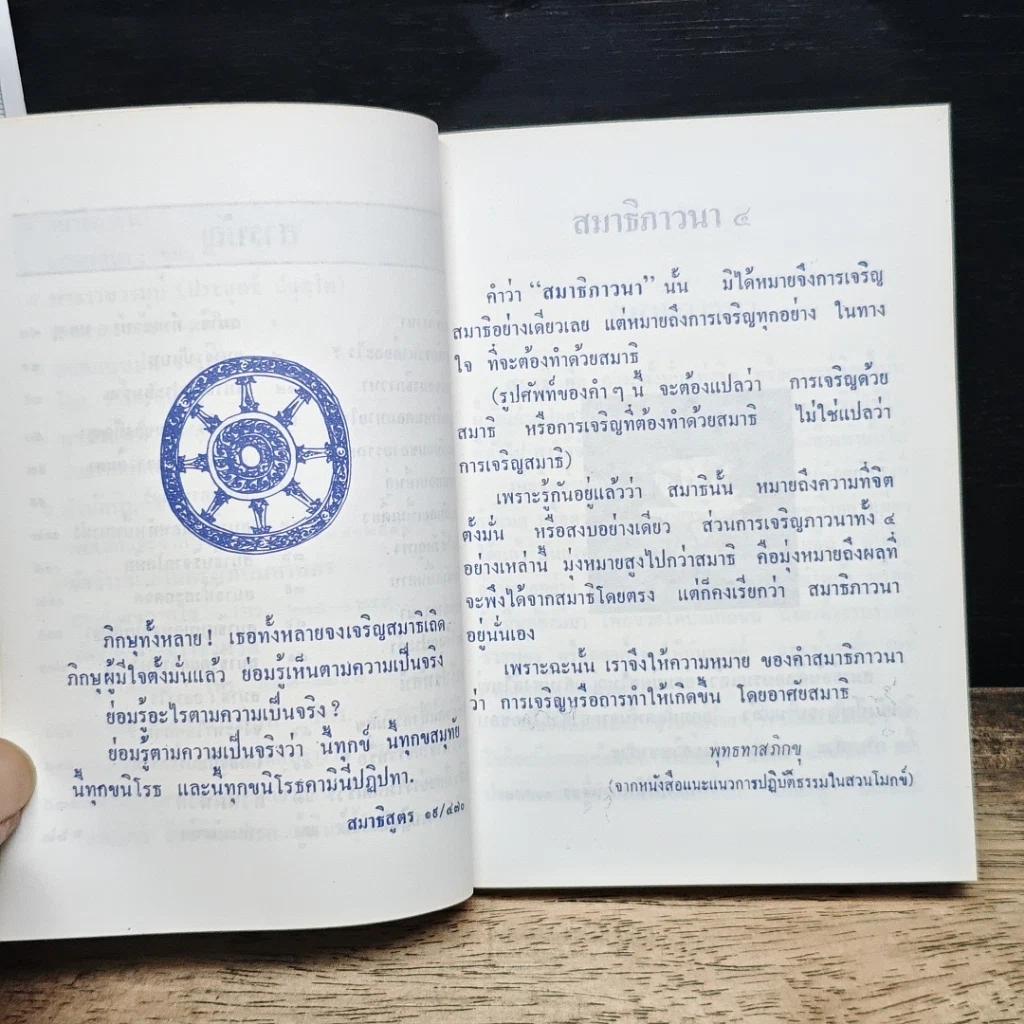 ภิกษุทั้งหลาย! เธอทั้งหลายจงเจริญสมาธิเถิด
ภิกษุผู้มีใจตั้งมั่นแล้ว ย่อมรู้เห็นตามความเป็นจริง
ย่อมรู้อะไรตามความเป็นจริง?
ย่อมรู้ตามความเป็นจริงว่า นี้ทุกข์ นี้ทุกขสมุทัย
นี้ทุกขนิโรธ และนี้ทุกขนิโรธคามินีปฏิปทา.
สมาธิสูตร ๑๙/๔๗๐
สมาธิภาวนา ๔
คำว่า “สมาธิภาวนา” นั้น มิได้หมายจึงการเจริญ
สมาธิอย่างเดียวเลย แต่หมายถึงการเจริญทุกอย่าง ในทาง
ใจ ที่จะต้องทำด้วยสมาธิ
(รูปศัพท์ของคำ ๆ นี้ จะต้องแปลว่า การเจริญด้วย
สมาธิ หรือการเจริญที่ต้องทำด้วยสมาธิ ไม่ใช่แปลว่า
การเจริญสมาธิ)
เพราะรู้กันอยู่แล้วว่า สมาธินั้น หมายถึงความที่จิต
ตั้งมั่น หรือสงบอย่างเดียว ส่วนการเจริญภาวนาทั้ง ๔
อย่างเหล่านี้ มุ่งหมายสูงไปกว่าสมาธิ คือมุ่งหมายถึงผลที่
จะพึงได้จากสมาธิโดยตรง แต่ก็คงเรียกว่า สมาธิภาวนา
อยู่นั่นเอง
เพราะฉะนั้น เราจึงให้ความหมาย ของคำสมาธิภาวนา
ว่า การเจริญหรือการทำให้เกิดขึ้น โดยอาศัยสมาธิ
พุทธทาสภิกขุ
(จากหนังสือแนะแนวการปฏิบัติธรรมในสวนโมกข์)